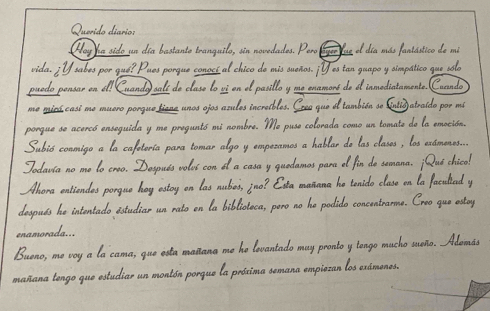 Querido diario:
Hoy ha sido un día bastante tranquilo, sin novedades. Pero ayer fue el día más fantástico de mi
vida. ¿Y sabes por qué? Pues porque conocí al chico de mis sueños. ¡Y es tan guapo y simpático que solo
puedo pensar en él! Cuando salí de clase lo vi en el pasillo y me enamoré de él inmediatamente. Cuando
me miró casi me muero porque tiene unos ojos azules increíbles. Creo que él también se sintió atraído por mí
porque se acercó enseguida y me preguntó mi nombre. Me puse colorada como un tomate de la emoción.
Subió conmigo a la cafetería para tomar algo y empezamos a hablar de las clases, los exámenes...
Todavía no me lo creo. Después volví con él a casa y quedamos para el fin de semana. ¡Qué chico!
Ahora entiendes porque hoy estoy en las nubes, ¿no? Esta mañana he tenido clase en la facultad y
después he intentado estudiar un rato en la biblioteca, pero no he podido concentrarme. Creo que estoy
enamorada...
Bueno, me voy a la cama, que esta mañana me he levantado muy pronto y tengo mucho sueño. Además
mañana tengo que estudiar un montón porque la próxima semana empiezan los exámenes.